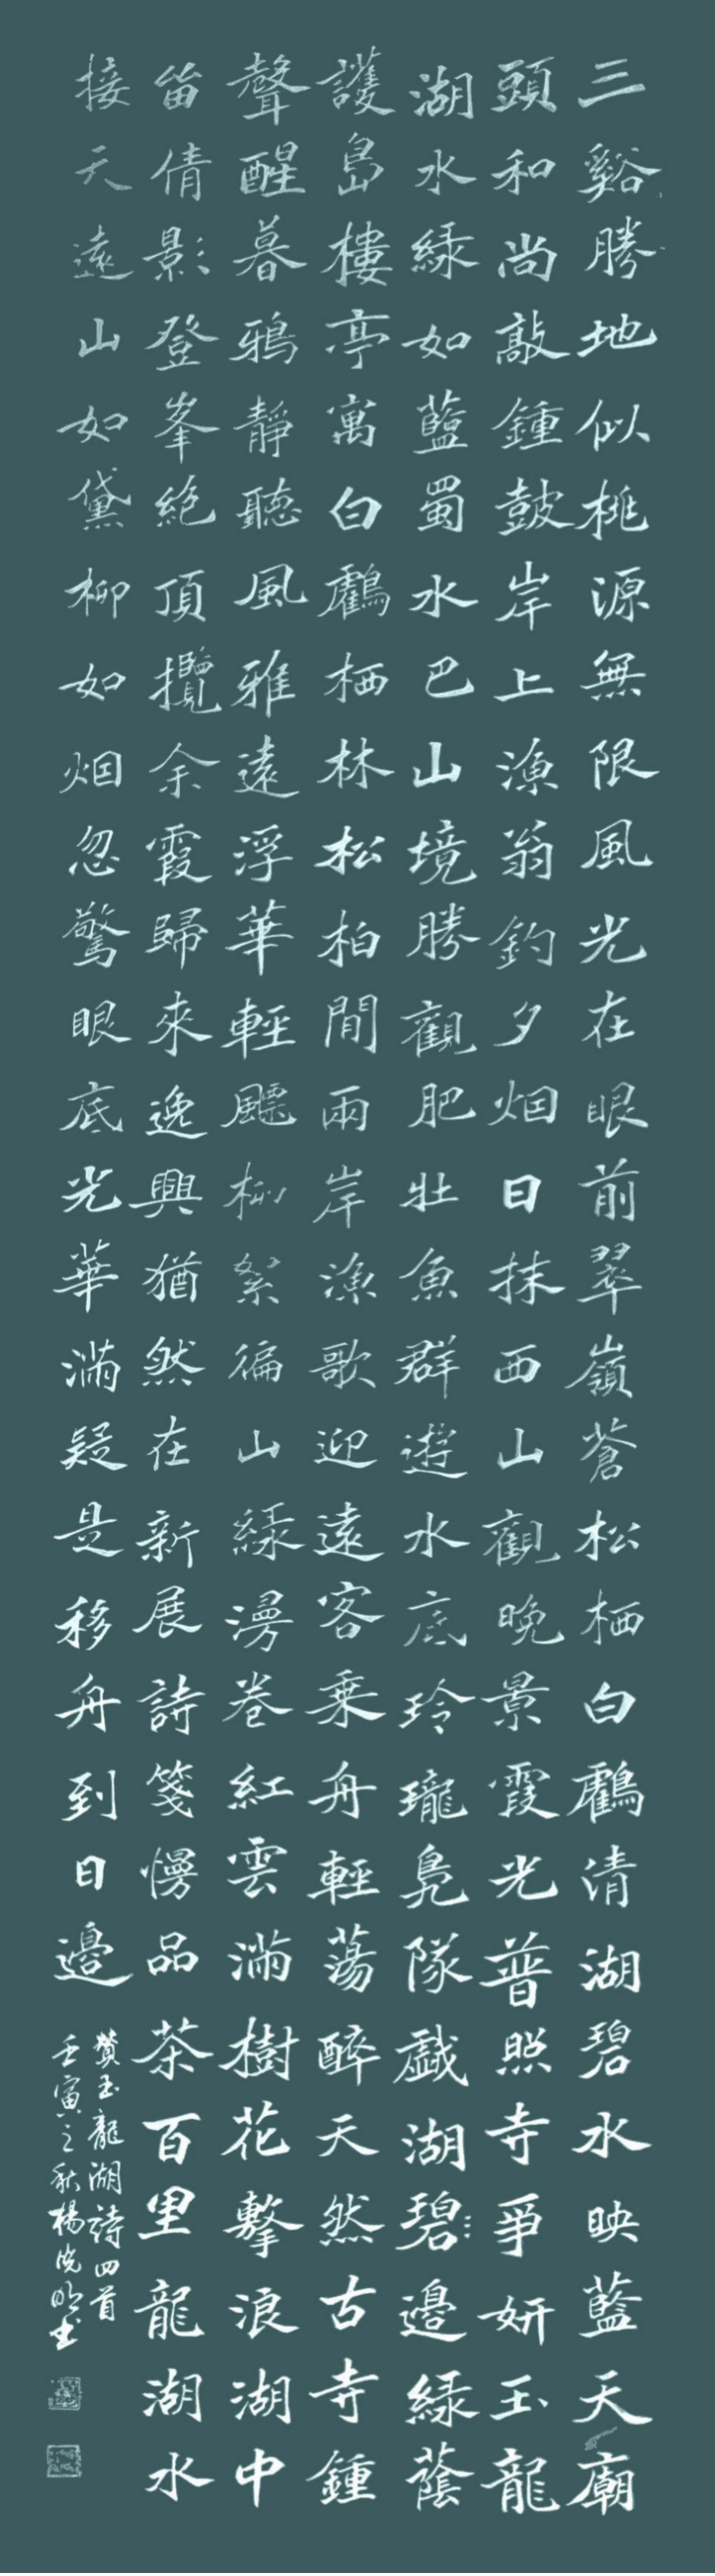 三谿勝地似桃源無限風光在眼前翠嶺蒼松栖白鸖清湖碧水映藍天廟
頭和尚敲鍾鼓岸上漁翁釣夕烟日抹西山觀晚景霞光普照寺爭妍玉龍
湖水綠如藍蜀水巴山境勝觀肥壯魚群遊水底玲瓏鳧隊戲湖碧邊綠蔭
護島樓亭寓白鸖栖林松柏間兩岸漁歌迎遠客乘舟輕蕩醉天然古寺鍾
聲醒暮鴉靜聽風雅遠浮華輕飄柳絮徧山綠漫卷紅雲滿樹花擊浪湖中
笛倩影登峯絕頂攬余霞歸來逸興猶然在新展詩箋慢品茶百里龍湖水
接天遠山如黛柳如烟忽驚眼底光華滿疑是移舟到日邊
贊玉龍湖詩四首
壬寅之秋楊洸明书